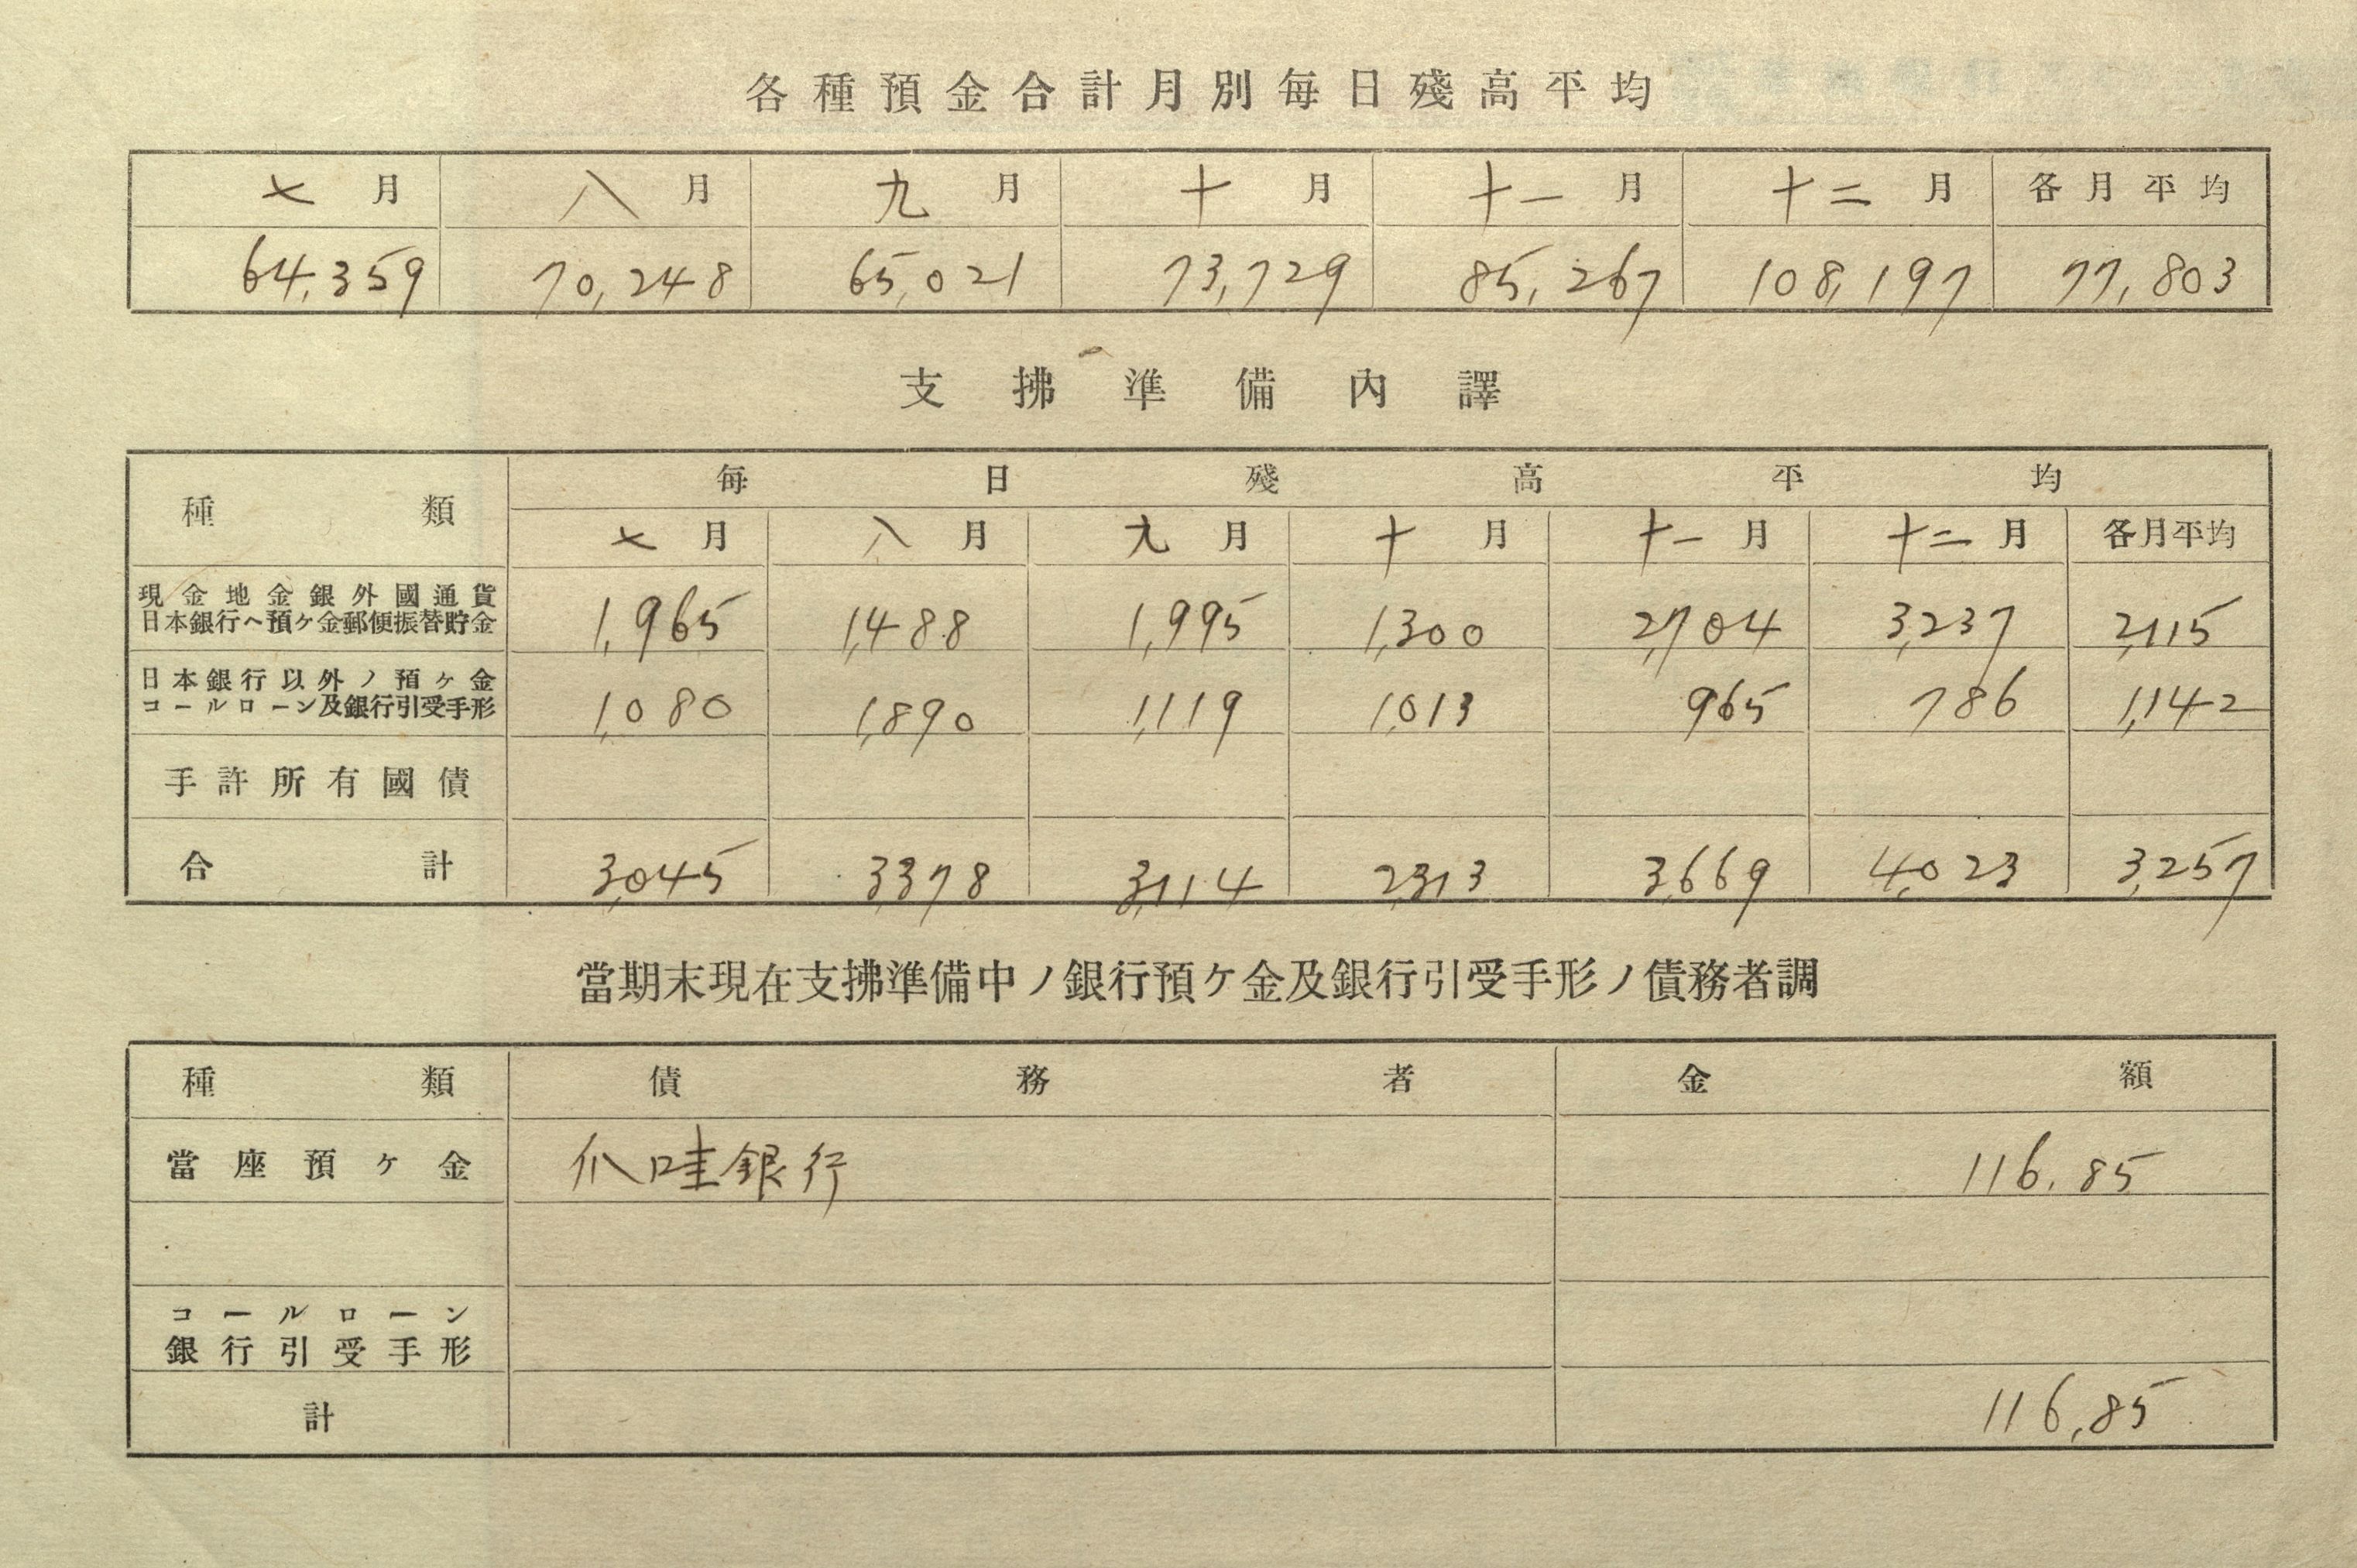 各種預金合計月別每日殘高平均
七月 八月 九月 十月 十一月 十二月 各月平均
64,359 70,248 65,021 73,729 85,267 108,197 77,803
支拂準備內譯
種類 每日殘高平均
七月 八月 九月 十月 十一月 十二月 各月平均
現金地金銀外國通貨
日本銀行ヘ預ケ金郵便振替貯金 1,965 1,488 1,995 1,300 2,704 3,237 2,115
日本銀行以外ノ預ケ金
コールローン及銀行引受手形 1,080 1,890 1,119 1,013 965 786 1,142
手許所有國債
合計 3,045 3,378 3,114 2,313 3,669 4,023 3,257
當期末現在支拂準備中ノ銀行預ケ金及銀行引受手形ノ債務者調
種類 債務者 金額
當座預ケ金 爪哇銀行 116.85
コールローン
銀行引受手形
計 116.85